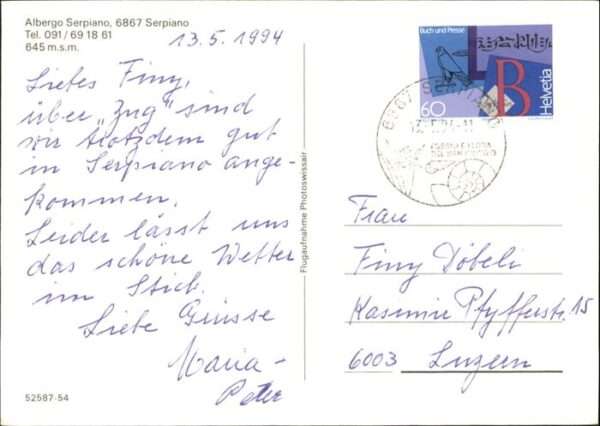 Albergo Serpiano, 6867 Serpiano
Tel. 091/69 18 61
645 m.s.m.
13.5.1994
Liebes Finy,
über "Zug" sind
wir trotzdem gut
in Serpiano ange-
kommen.
Leider lässt uns
das schöne Wetter
im Stich.
Liebe Grüsse
Maria-
Peter
52587-54
Flugaufnahme Photoswissair
Buch und Presse
B
60
Helvetia
6867
Frau
Finy Döbeli
Kasimir Pfyfferstr. 15
6003 Luzern